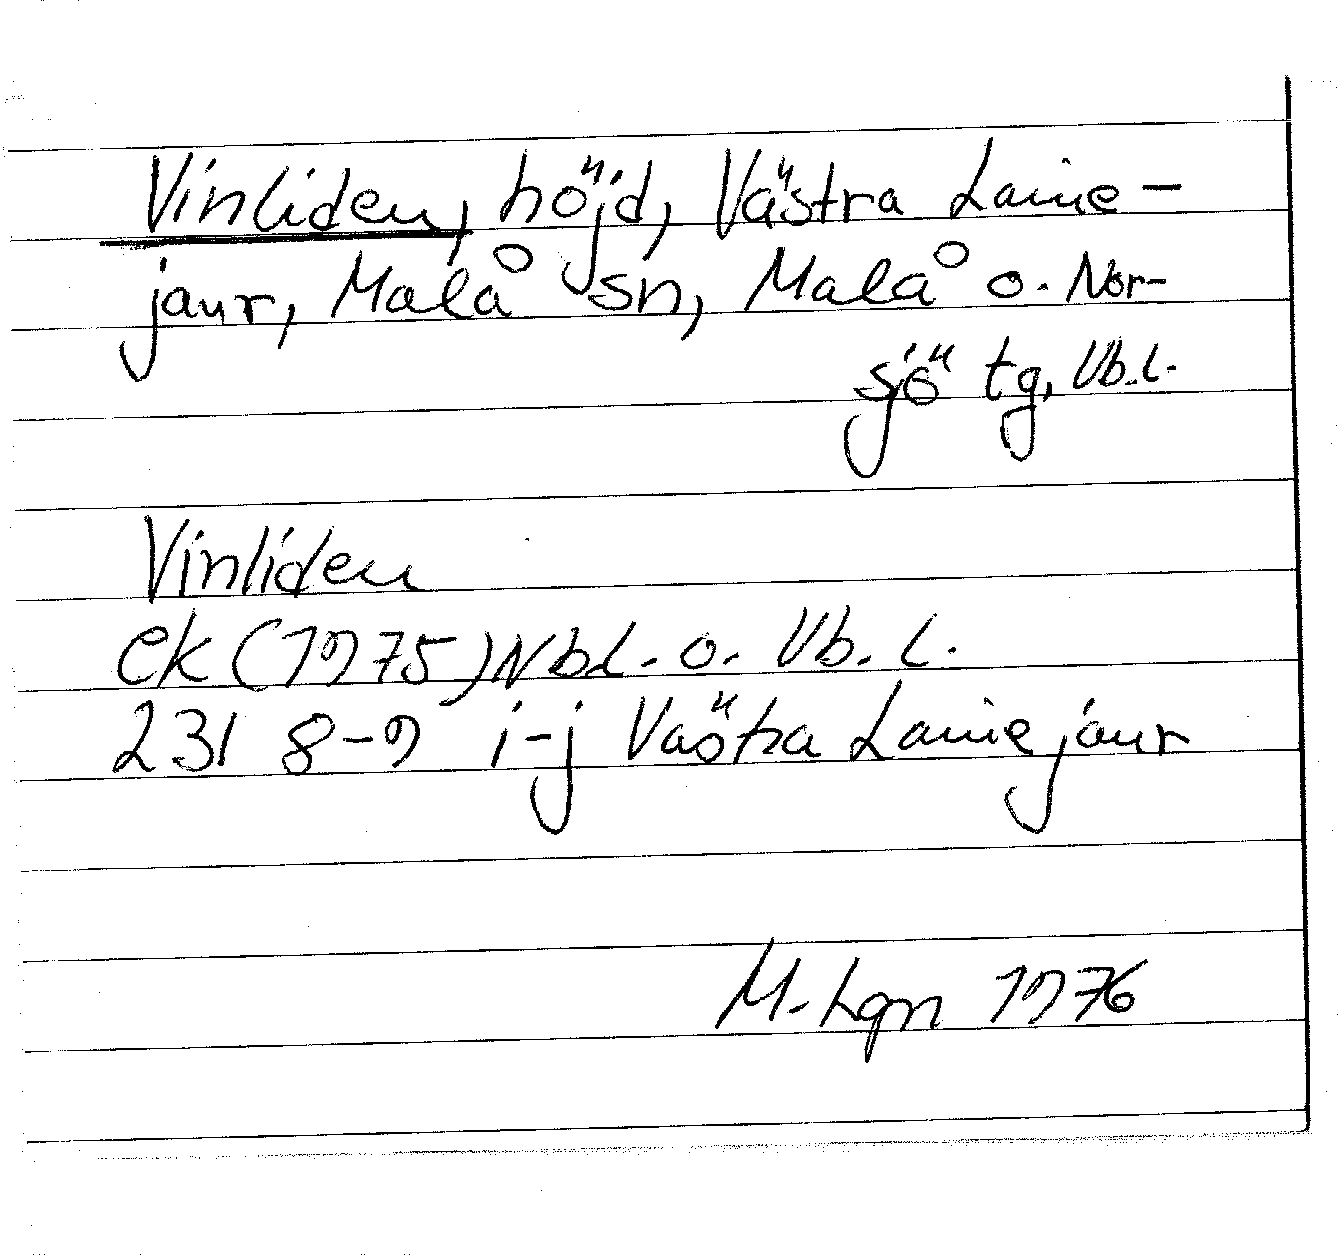 Vinliden, höjd, Västra Lainie-
jaur, Malå sn, Malå o. Nor-
sjö tg, Vb.l.
Vinliden
ek (1975) Nbl. o. Vb. l.
231 8-9 i-j Västra Lainiejaur
M. Lgn 1976